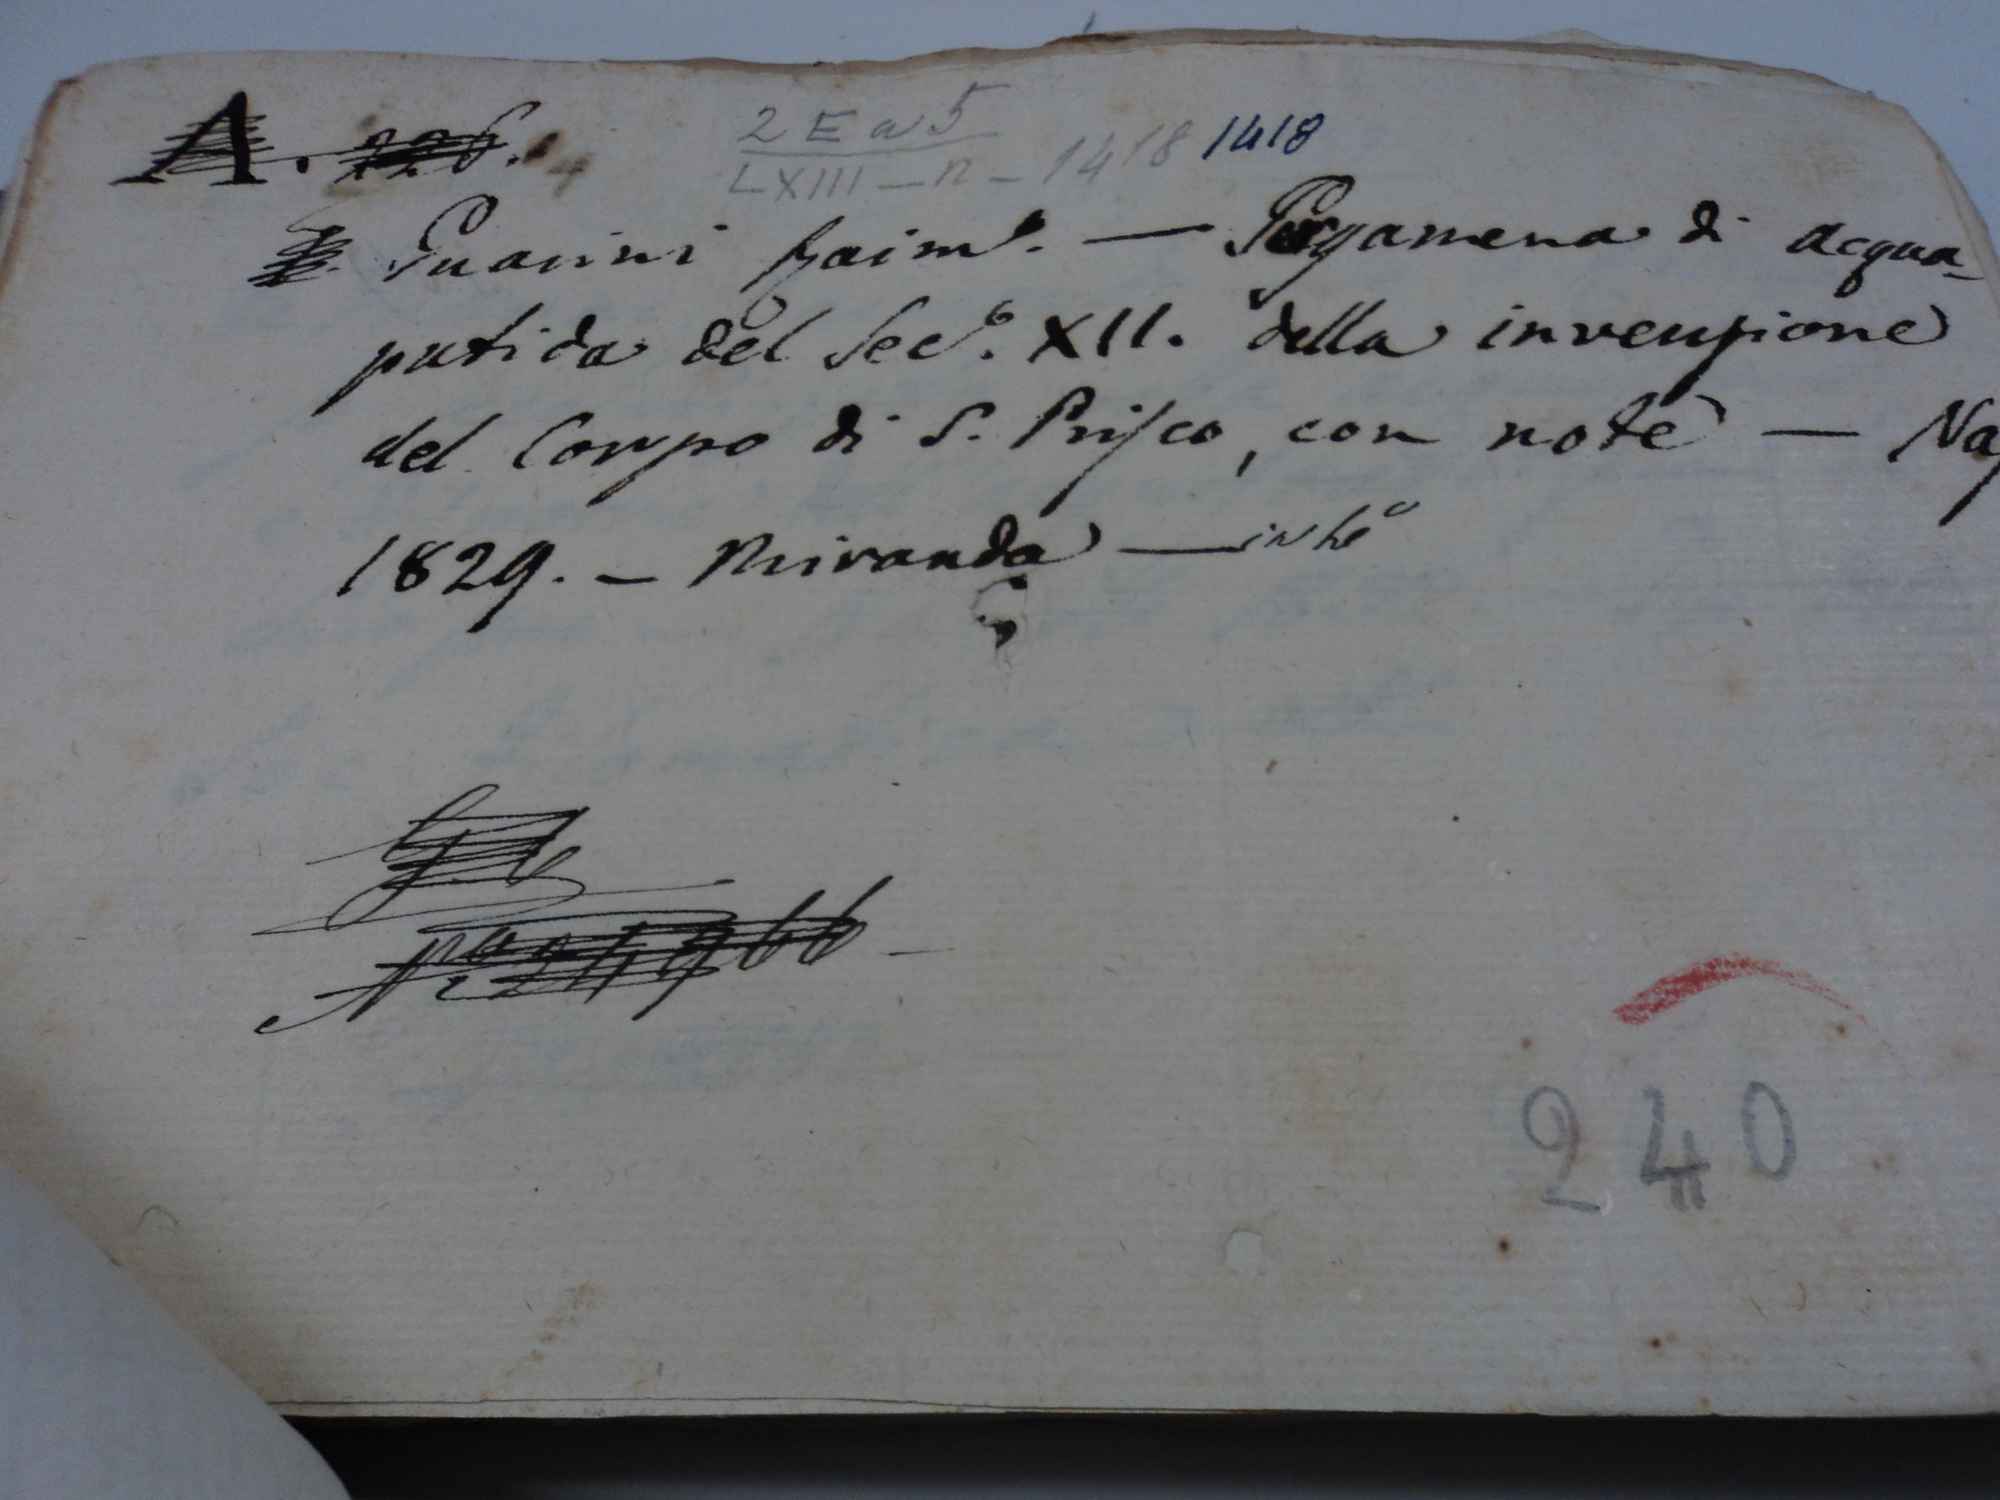 A. 226.
2 E a 5
LXIII - n - 1418 1418
Guarini Raim.° — Pergamena di acqua-
putida del Sec.° XII. della invenzione
del Corpo di S. Prisco, con note — Nap
1829. — Miranda — in 4°
240